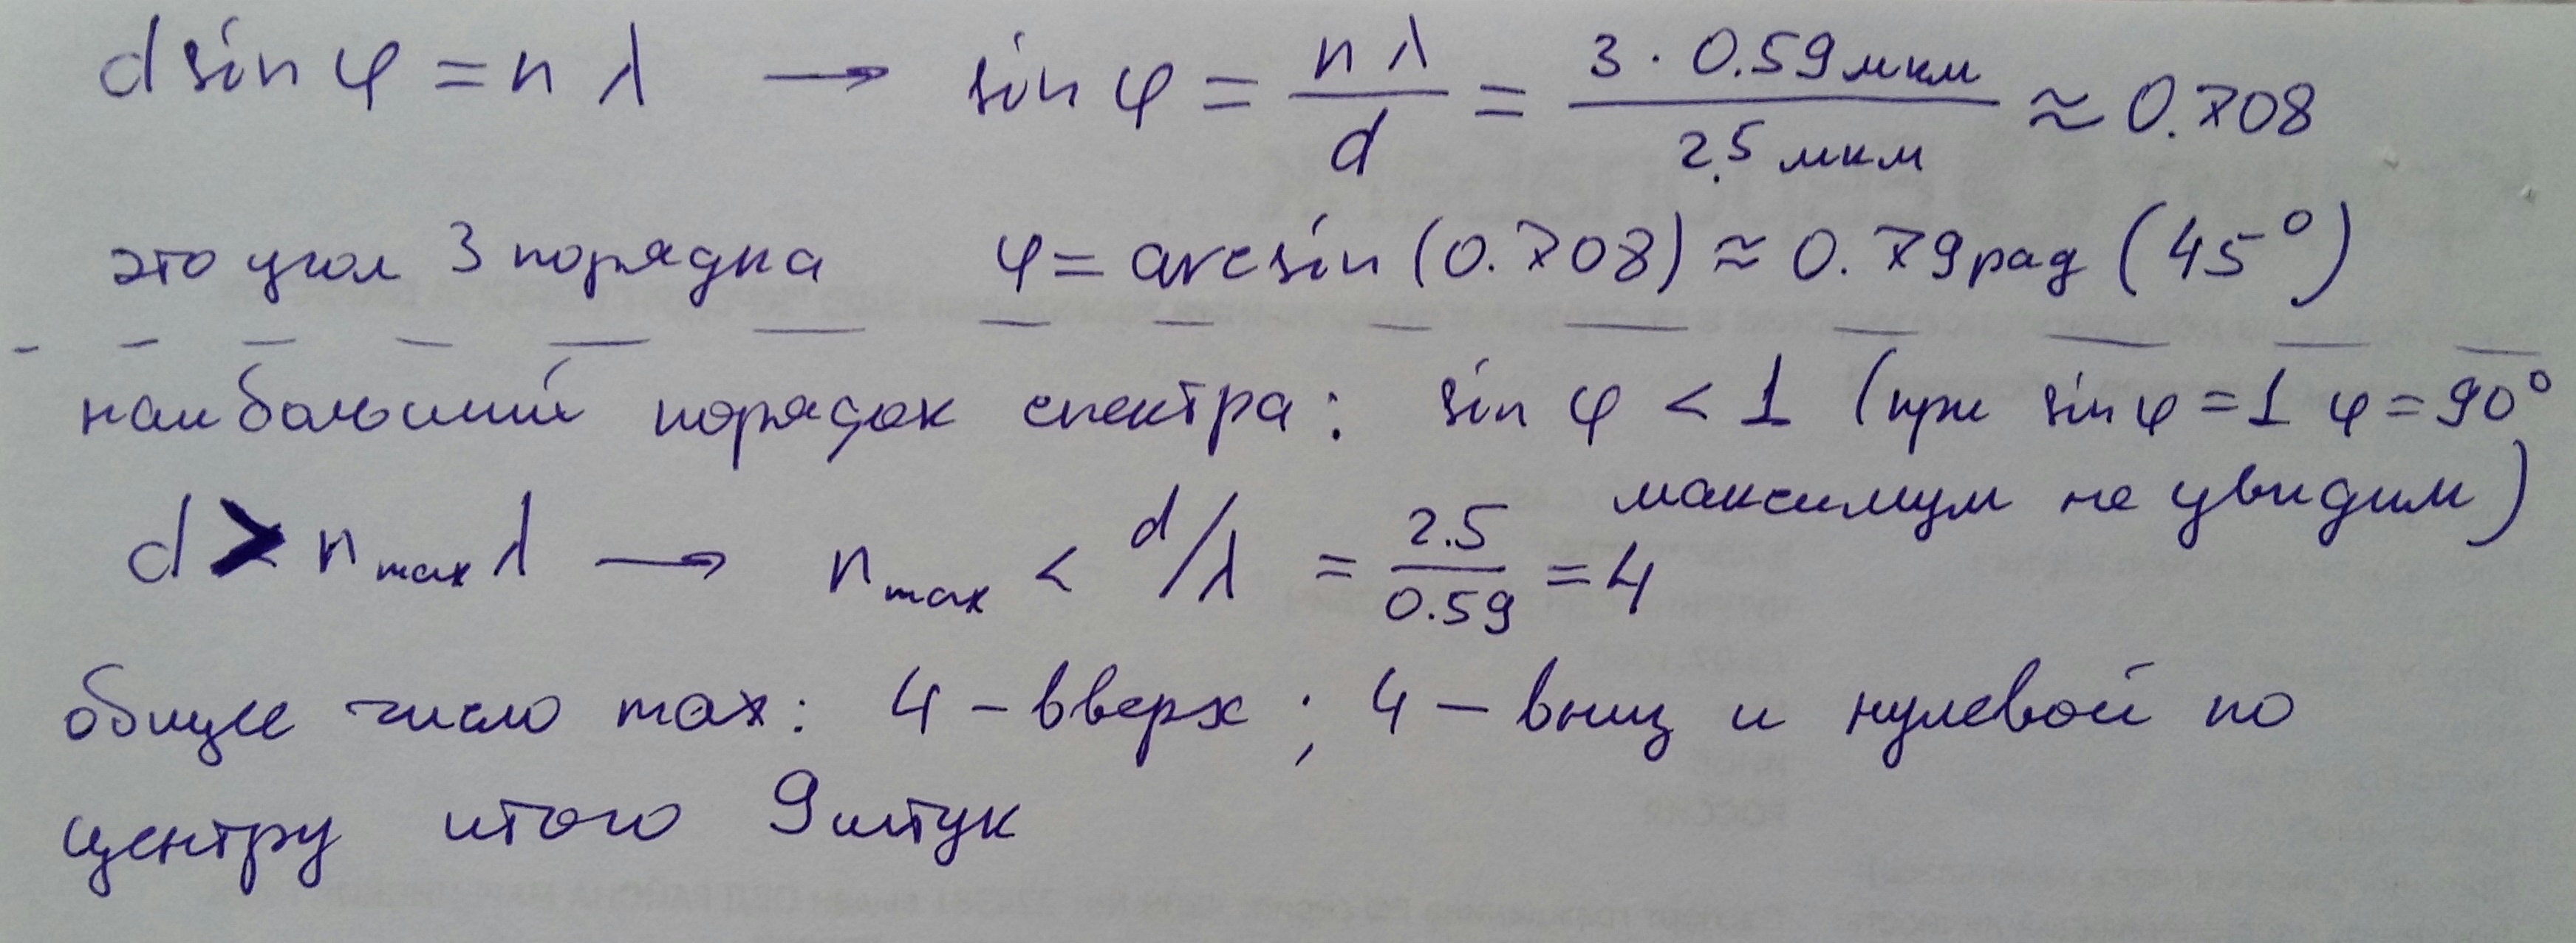 d sin φ = n λ → sin φ = nλ / d = 3 · 0.59 мкм / 2.5 мкм ≈ 0.708
это угол 3 порядка φ = arcsin (0.708) ≈ 0.79 рад (45°)
наибольший порядок спектра: sin φ < 1 (при sin φ = 1 φ = 90°
максимум не увидим)
d > n max λ → n max < d/λ = 2.5 / 0.59 = 4
общее число max: 4 – вверх ; 4 – вниз и нулевой по
центру итого 9 штук